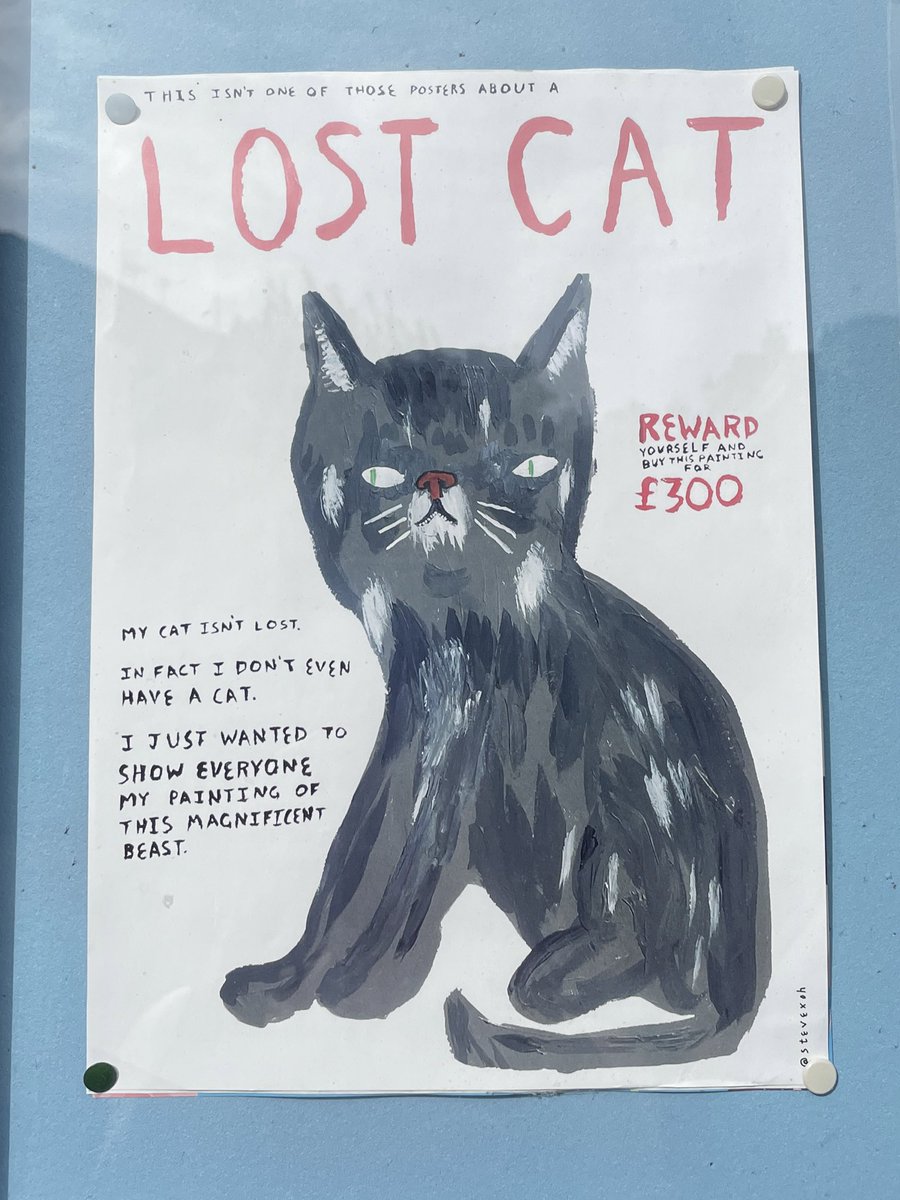 THIS ISN'T ONE OF THOSE POSTERS ABOUT A
LOST CAT
REWARD
YOURSELF AND
BUY THIS PAINTING
FOR
£300
MY CAT ISN'T LOST.
IN FACT I DON'T EVEN
HAVE A CAT.
I JUST WANTED TO
SHOW EVERYONE
MY PAINTING OF
THIS MAGNIFICENT
BEAST.
@stevexoh